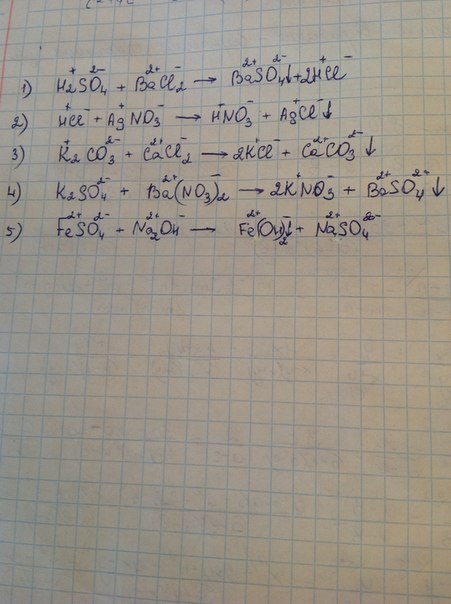 1) H₂⁺SO₄²⁻ + Ba²⁺Cl₂⁻ → Ba²⁺SO₄²⁻↓ + 2H⁺Cl⁻
2) H⁺Cl⁻ + Ag⁺NO₃⁻ → H⁺NO₃⁻ + Ag⁺Cl⁻↓
3) K₂⁺CO₃²⁻ + Ca²⁺Cl₂⁻ → 2K⁺Cl⁻ + Ca²⁺CO₃²⁻↓
4) K₂SO₄⁻ + Ba²⁺(NO₃)₂⁻ → 2K⁺NO₃⁻ + Ba²⁺SO₄²⁺↓
5) Fe²⁺SO₄²⁻ + Na₂²⁺OH⁻ → Fe²⁺(OH)₂⁻↓ + Na²⁺SO₄²⁻